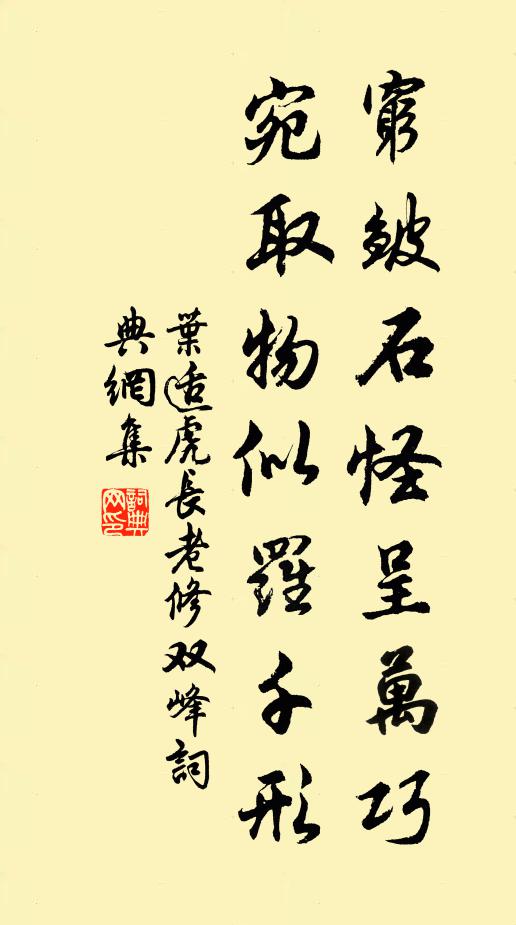 窮皴石怪呈萬巧
宛取物似羅千形
葉适虎長老修双峰詞
典網集
詞典网印